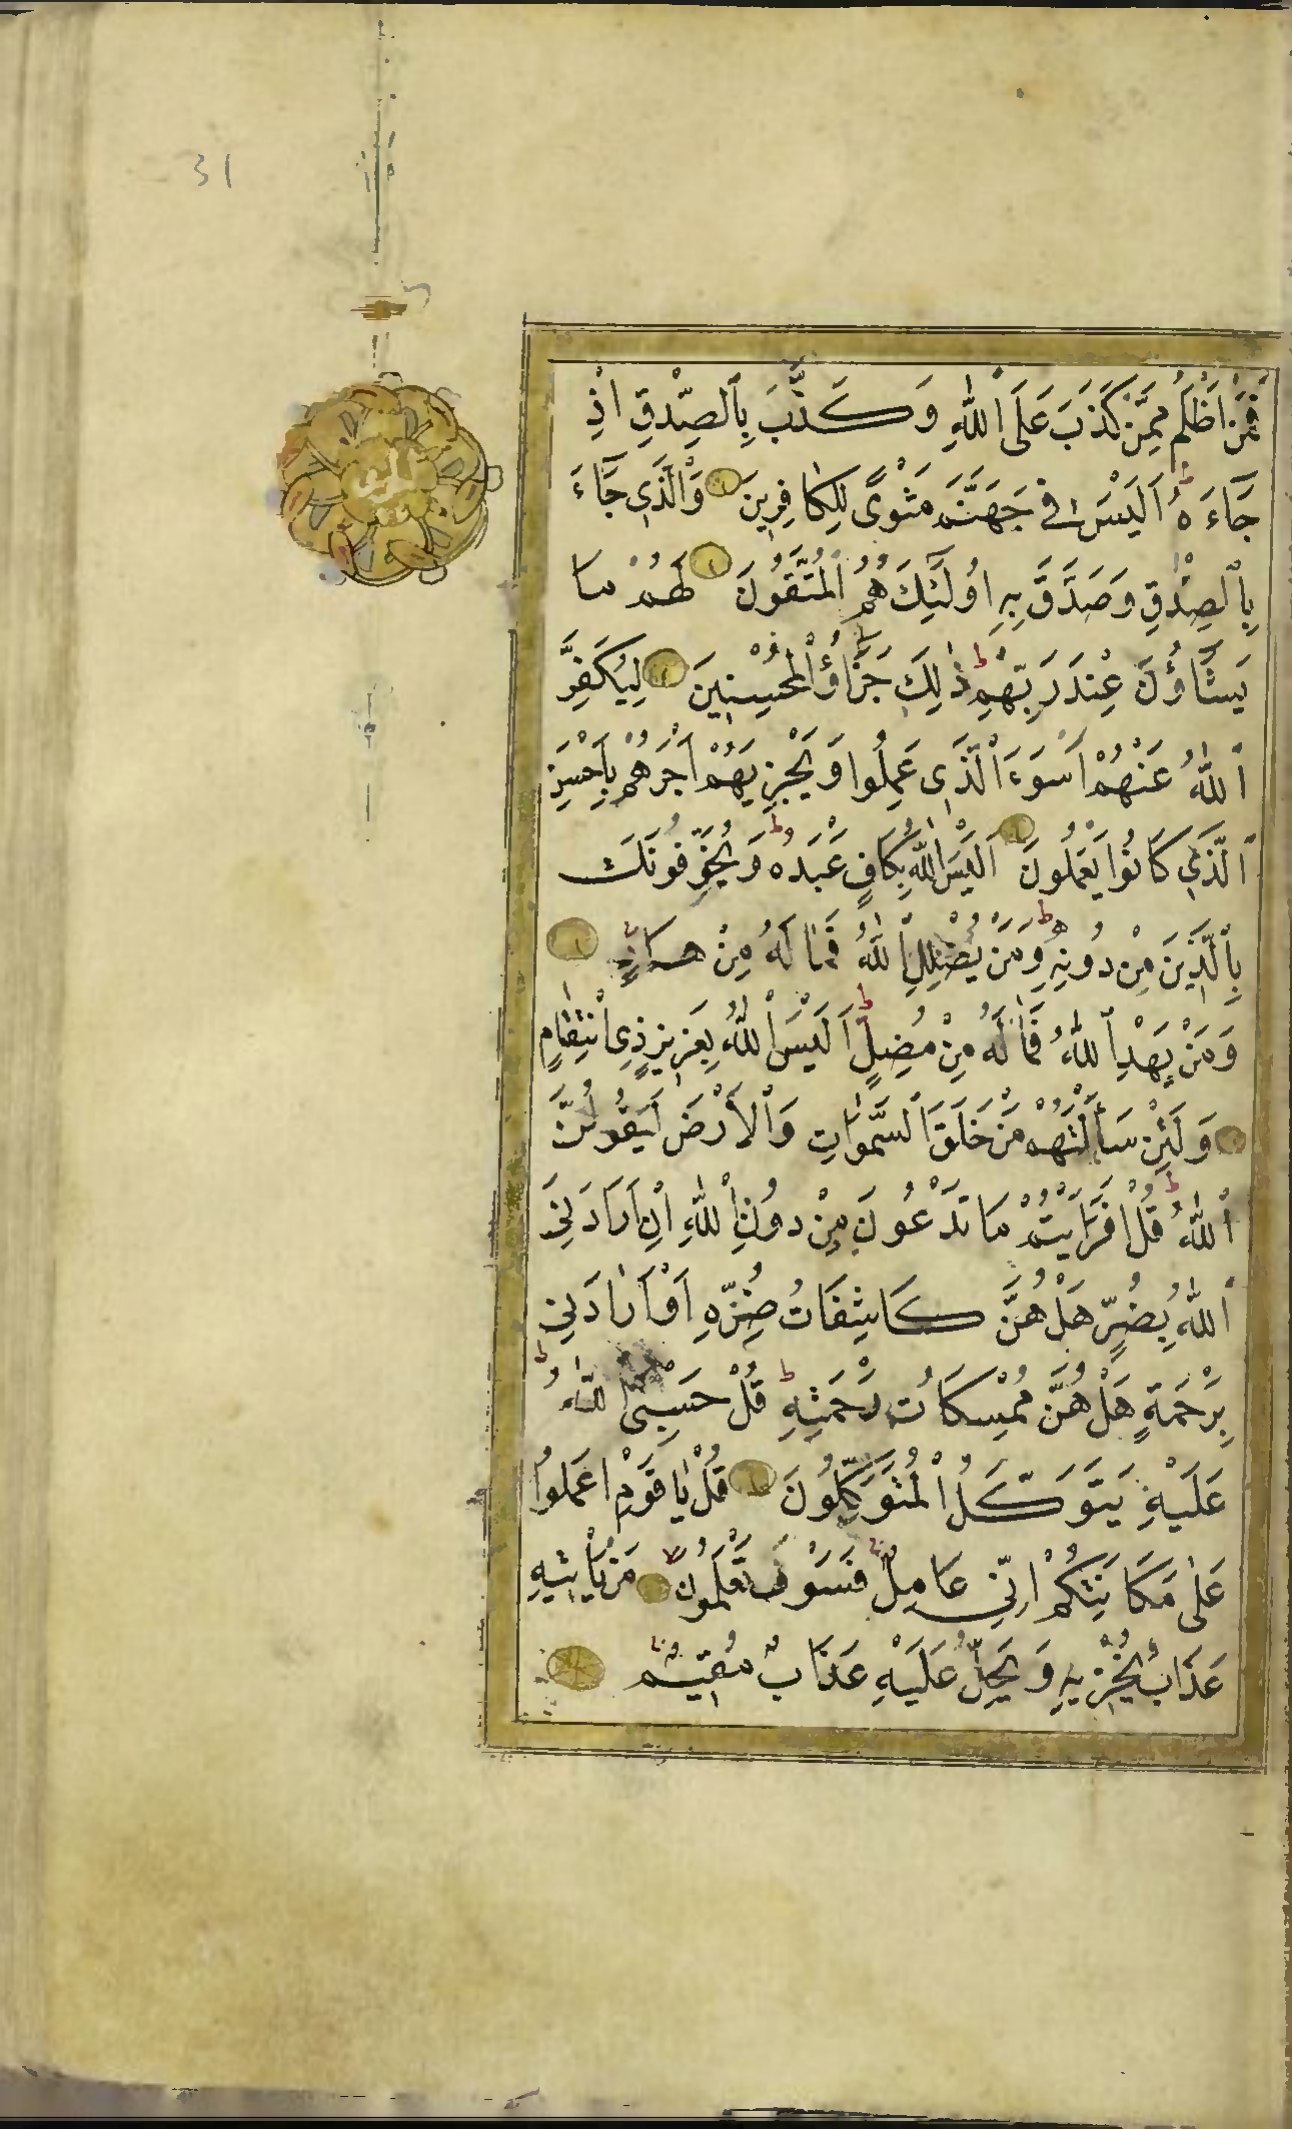 31
فَمَنْ اَظْلَمُ مِمَّنْ كَذَبَ عَلَى ٱللّٰهِ وَكَذَّبَ بِٱلصِّدْقِ اِذْ
جَٓاءَهُ اَلَيْسَ فِي جَهَنَّمَ مَثْوًى لِلْكَافِرِينَ وَٱلَّذِي جَٓاءَ
بِٱلصِّدْقِ وَصَدَّقَ بِهِ اُولٰٓئِكَ هُمُ ٱلْمُتَّقُونَ لَهُمْ مَا
يَشَٓاؤُنَ عِنْدَ رَبِّهِمْ ذٰلِكَ جَزَٓاؤُ ٱلْمُحْسِنِينَ لِيُكَفِّرَ
ٱللّٰهُ عَنْهُمْ اَسْوَءَ ٱلَّذِي عَمِلُوا وَيَجْزِيَهُمْ اَجْرَهُمْ بِاَحْسَنِ
ٱلَّذِي كَانُوا يَعْمَلُونَ اَلَيْسَ ٱللّٰهُ بِكَافٍ عَبْدَهُ وَيُخَوِّفُونَكَ
بِٱلَّذِينَ مِنْ دُونِهِ وَمَنْ يُضْلِلِ ٱللّٰهُ فَمَا لَهُ مِنْ هَادٍ
وَمَنْ يَهْدِ ٱللّٰهُ فَمَا لَهُ مِنْ مُضِلٍّ اَلَيْسَ ٱللّٰهُ بِعَزِيزٍ ذِي ٱنْتِقَامٍ
وَلَئِنْ سَاَلْتَهُمْ مَنْ خَلَقَ ٱلسَّمٰوَاتِ وَٱلْاَرْضَ لَيَقُولُنَّ
ٱللّٰهُ قُلْ اَفَرَاَيْتُمْ مَا تَدْعُونَ مِنْ دُونِ ٱللّٰهِ اِنْ اَرَادَنِيَ
ٱللّٰهُ بِضُرٍّ هَلْ هُنَّ كَاشِفَاتُ ضُرِّهِ اَوْ اَرَادَنِي
بِرَحْمَةٍ هَلْ هُنَّ مُمْسِكَاتُ رَحْمَتِهِ قُلْ حَسْبِيَ ٱللّٰهُ
عَلَيْهِ يَتَوَكَّلُ ٱلْمُتَوَكِّلُونَ قُلْ يَا قَوْمِ ٱعْمَلُوا
عَلٰى مَكَانَتِكُمْ اِنِّي عَامِلٌ فَسَوْفَ تَعْلَمُونَ مَنْ يَأْتِيهِ
عَذَابٌ يُخْزِيهِ وَيَحِلُّ عَلَيْهِ عَذَابٌ مُقِيمٌ